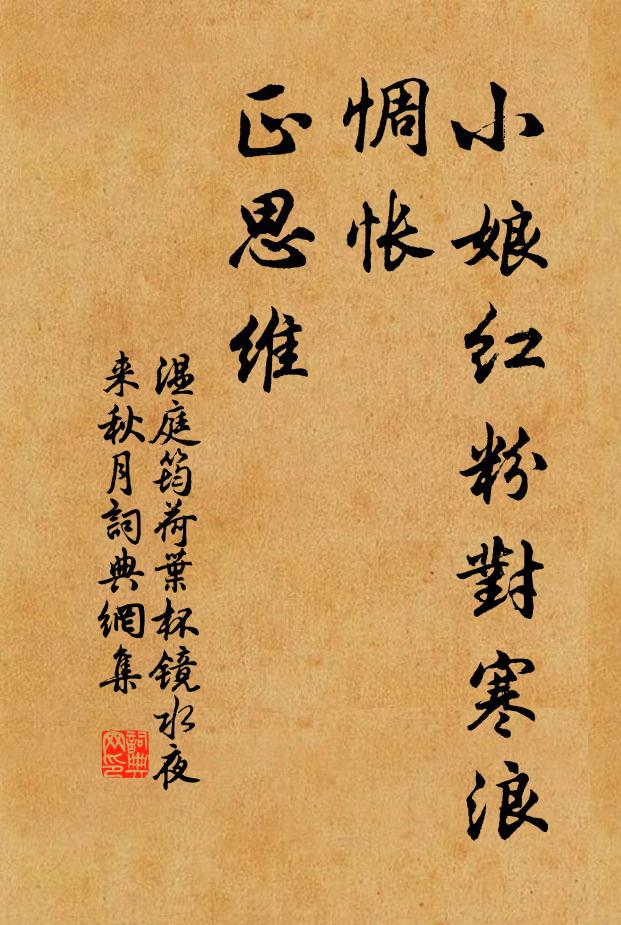 小娘红粉對寒浪
惆怅
正思维
温庭筠荷葉杯镜水夜
来秋月詞典網集
詞典
网印